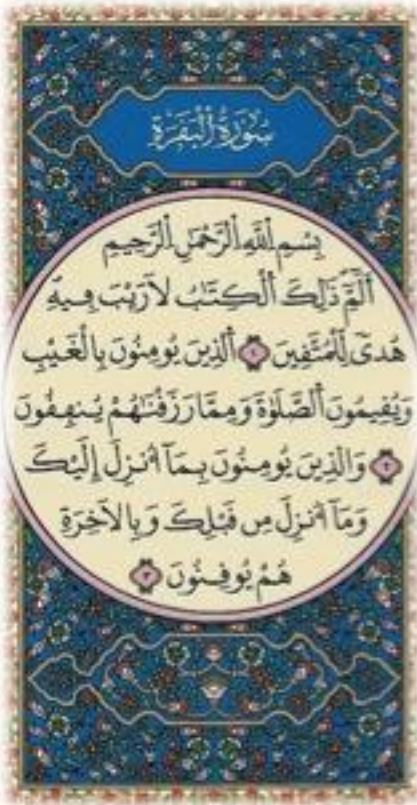 سُورَةُ اَ۬لْبَقَرَةِ
بِسْمِ اِ۬للَّهِ اِ۬لرَّحْمَٰنِ اِ۬لرَّحِيمِ
أَلَٓمِّٓ ذَٰلِكَ اَ۬لْكِتَٰبُ لَا رَيْبَ فِيهِ
هُدىٗ لِّلْمُتَّقِينَ ١ اَ۬لذِينَ يُومِنُونَ بِالْغَيْبِ
وَيُقِيمُونَ اَ۬لصَّلَوٰةَ وَمِمَّا رَزَقْنَٰهُمْ يُنفِقُونَ
٢ وَالذِينَ يُومِنُونَ بِمَآ أُنزِلَ إِلَيْكَ
وَمَآ أُنزِلَ مِن قَبْلِكَ وَبِالَاخِرَةِ
هُمْ يُوقِنُونَ ٣